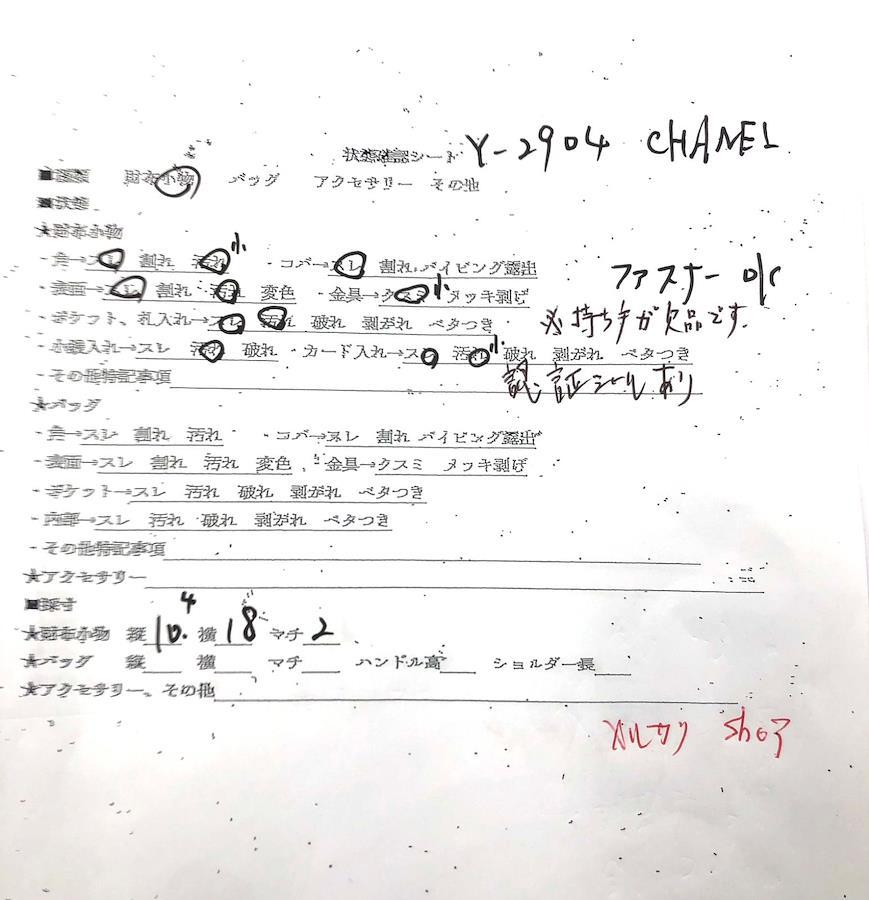 状態確認シート Y-2904 CHANEL
■種類 財布小物 バッグ アクセサリー その他
■状態
★財布小物
・角→スレ 割れ 汚れ 小 ・コバ→スレ 割れ パイピング露出
ファスナー ok
・表面→スレ 割れ 汚れ 変色 ・金具→クスミ 小 メッキ剥げ
・ポケット、札入れ→スレ 汚れ 破れ 剥がれ ベタつき
※持ち手が欠品です。
・小銭入れ→スレ 汚れ 破れ ・カード入れ→スレ 汚れ 小 破れ 剥がれ ベタつき
・その他特記事項 認証シールあり
★バッグ
・角→スレ 割れ 汚れ ・コバ→スレ 割れ パイピング露出
・表面→スレ 割れ 汚れ 変色 ・金具→クスミ メッキ剥げ
・ポケット→スレ 汚れ 破れ 剥がれ ベタつき
・内部→スレ 汚れ 破れ 剥がれ ベタつき
・その他特記事項
★アクセサリー
■採寸
★財布小物 縦 10.4 横 18 マチ 2
★バッグ 縦 横 マチ ハンドル高 ショルダー長
★アクセサリー、その他
メルカリ shop